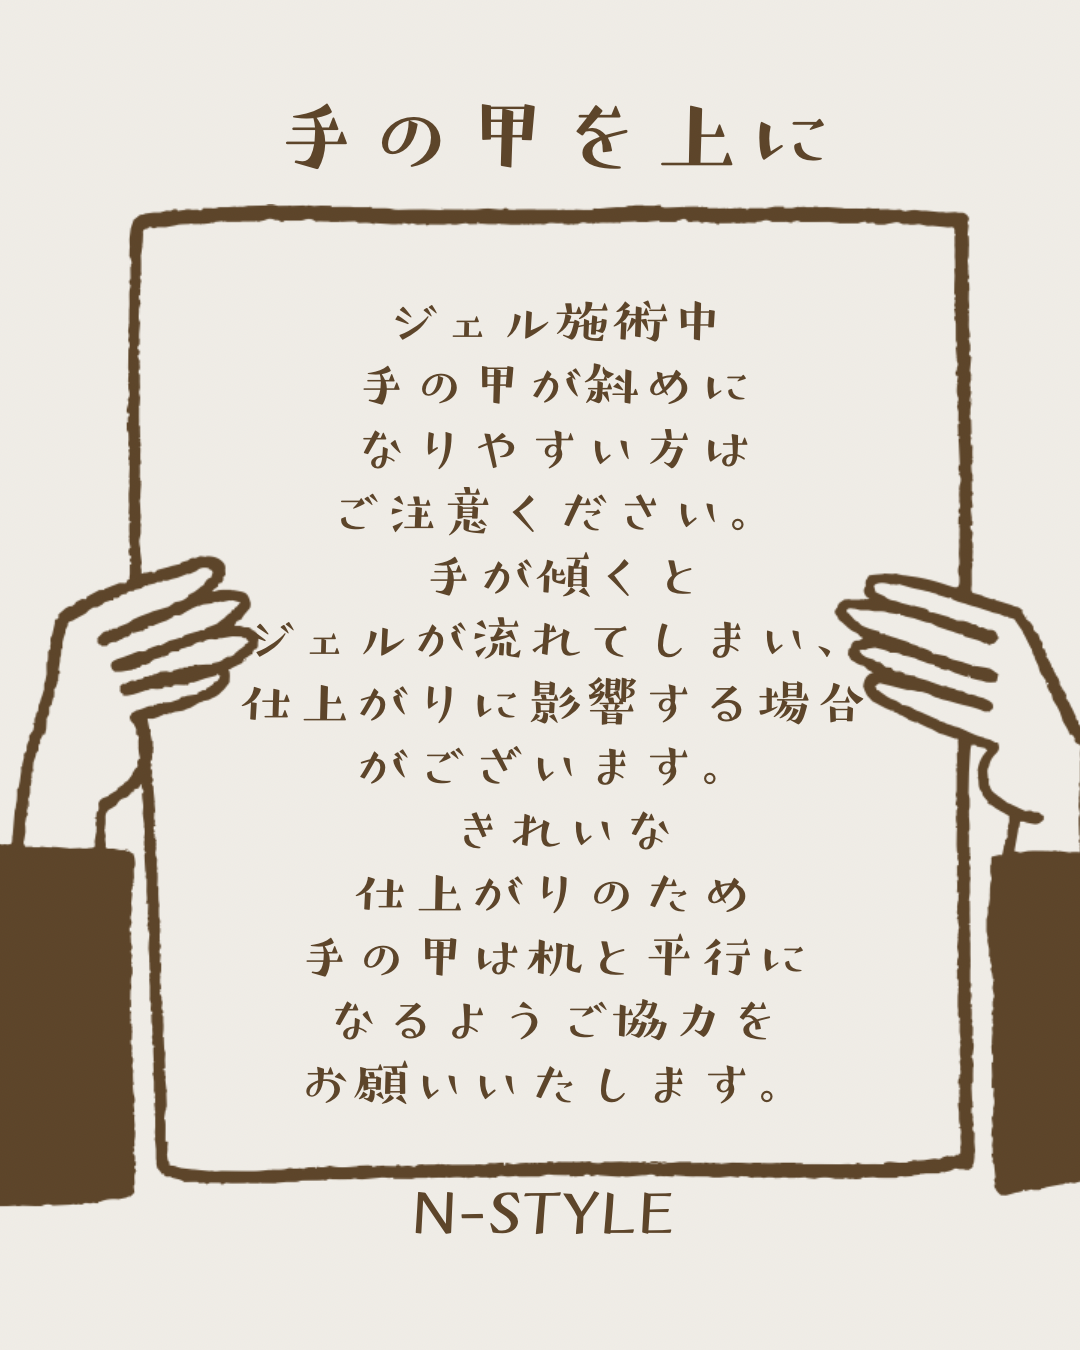 手の甲を上に
ジェル施術中
手の甲が斜めに
なりやすい方は
ご注意ください。
手が傾くと
ジェルが流れてしまい、
仕上がりに影響する場合
がございます。
きれいな
仕上がりのため
手の甲は机と平行に
なるようご協力を
お願いいたします。
N-STYLE